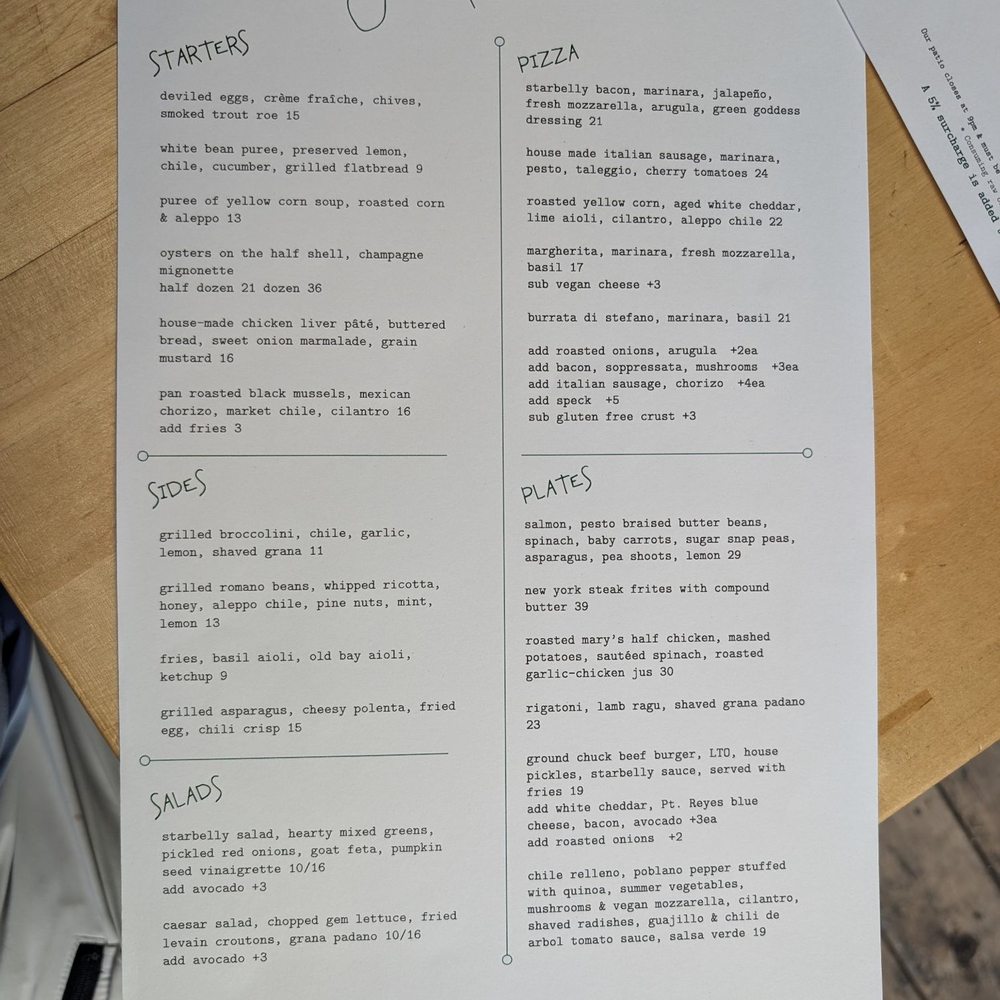 STARTERS
deviled eggs, crème fraîche, chives,
smoked trout roe 15
white bean puree, preserved lemon,
chile, cucumber, grilled flatbread 9
puree of yellow corn soup, roasted corn
& aleppo 13
oysters on the half shell, champagne
mignonette
half dozen 21 dozen 36
house-made chicken liver pâté, buttered
bread, sweet onion marmalade, grain
mustard 16
pan roasted black mussels, mexican
chorizo, market chile, cilantro 16
add fries 3
SIDES
grilled broccolini, chile, garlic,
lemon, shaved grana 11
grilled romano beans, whipped ricotta,
honey, aleppo chile, pine nuts, mint,
lemon 13
fries, basil aioli, old bay aioli,
ketchup 9
grilled asparagus, cheesy polenta, fried
egg, chili crisp 15
SALADS
starbelly salad, hearty mixed greens,
pickled red onions, goat feta, pumpkin
seed vinaigrette 10/16
add avocado +3
caesar salad, chopped gem lettuce, fried
levain croutons, grana padano 10/16
add avocado +3
PIZZA
starbelly bacon, marinara, jalapeño,
fresh mozzarella, arugula, green goddess
dressing 21
house made italian sausage, marinara,
pesto, taleggio, cherry tomatoes 24
roasted yellow corn, aged white cheddar,
lime aioli, cilantro, aleppo chile 22
margherita, marinara, fresh mozzarella,
basil 17
sub vegan cheese +3
burrata di stefano, marinara, basil 21
add roasted onions, arugula +2ea
add bacon, soppressata, mushrooms +3ea
add italian sausage, chorizo +4ea
add speck +5
sub gluten free crust +3
PLATES
salmon, pesto braised butter beans,
spinach, baby carrots, sugar snap peas,
asparagus, pea shoots, lemon 29
new york steak frites with compound
butter 39
roasted mary's half chicken, mashed
potatoes, sautéed spinach, roasted
garlic-chicken jus 30
rigatoni, lamb ragu, shaved grana padano
23
ground chuck beef burger, LTO, house
pickles, starbelly sauce, served with
fries 19
add white cheddar, Pt. Reyes blue
cheese, bacon, avocado +3ea
add roasted onions +2
chile relleno, poblano pepper stuffed
with quinoa, summer vegetables,
mushrooms & vegan mozzarella, cilantro,
shaved radishes, guajillo & chili de
arbol tomato sauce, salsa verde 19
Our patio closes at 9pm & must be
* Consuming raw
A 5% surcharge is added